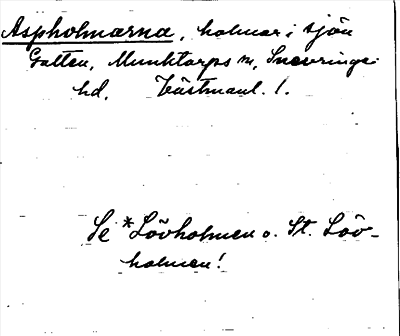 Aspholmarna, holmar i sjön
Gatten, Munktorps sn, Snevringe
hd. Västmanl. l.
Se *Lövholmen o. St. Löv-
holmen!